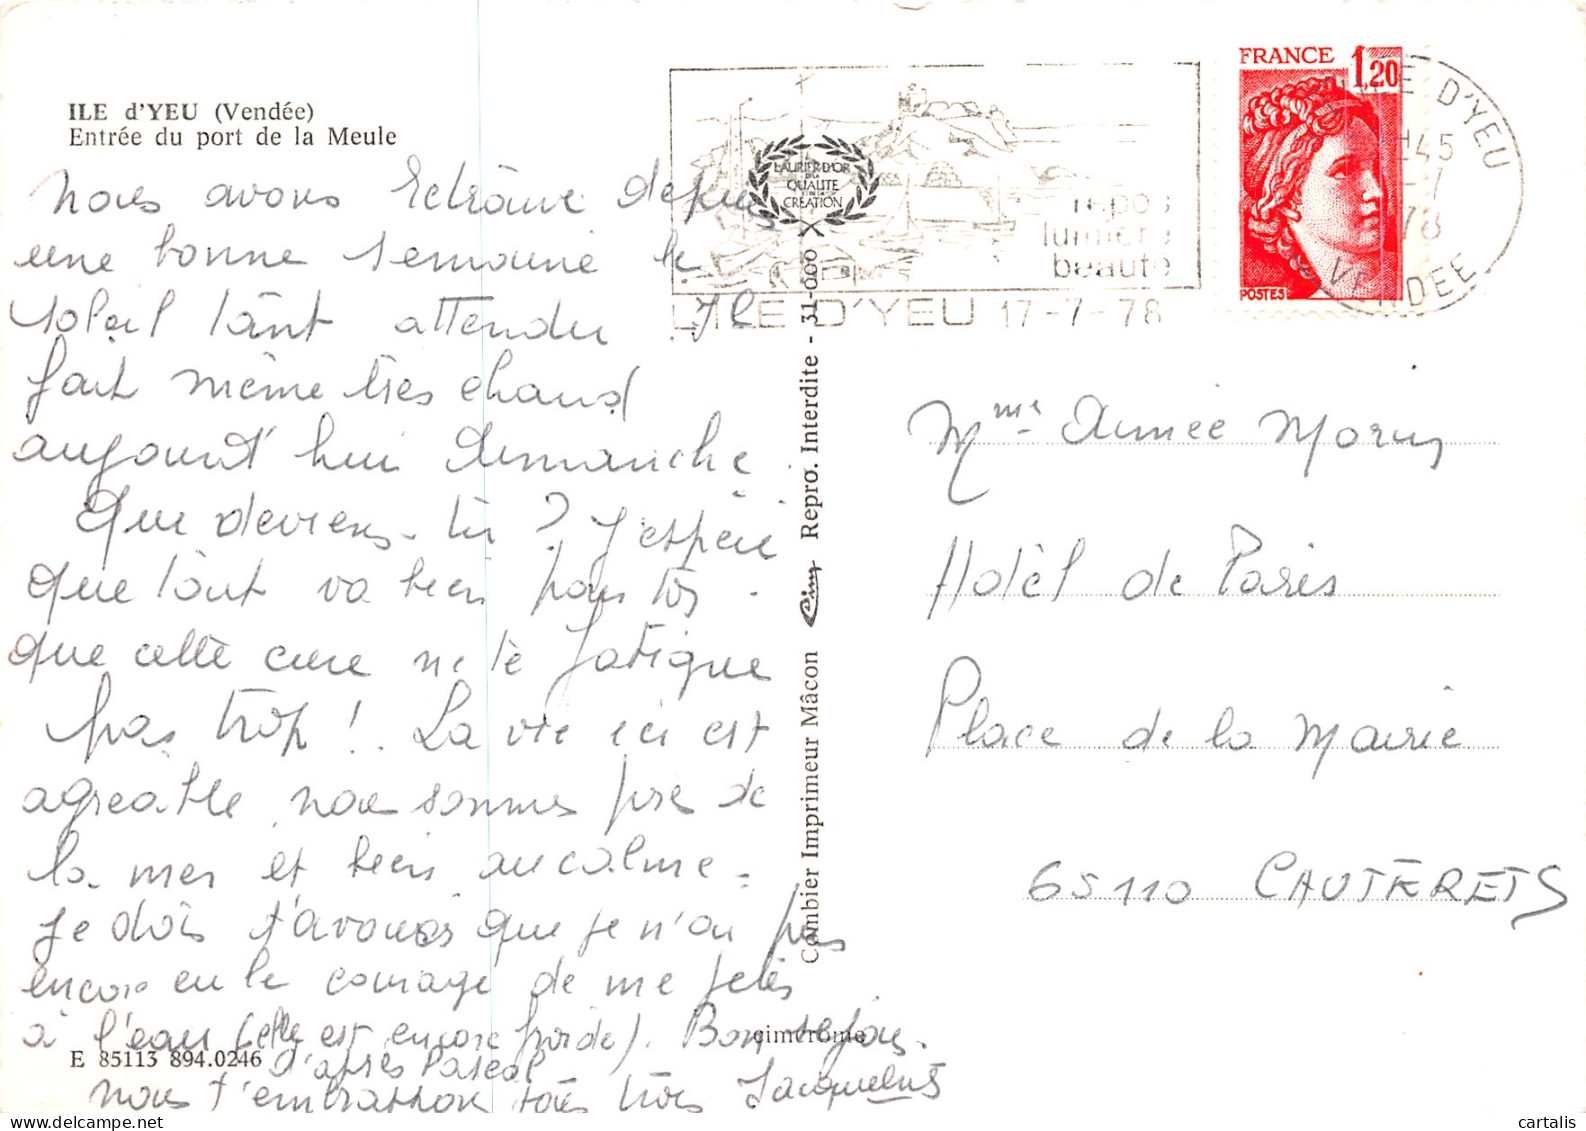 ILE d'YEU (Vendée)
Entrée du port de la Meule
Nous avons retrouvé depuis
une bonne semaine le
soleil tant attendu. Il
fait même très chaud
aujourd'hui dimanche.
Que deviens-tu ? J'espère
que tout va bien pour toi.
que cette cure ne te fatigue
pas trop ! La vie ici est
agréable, nous sommes près de
la mer et bien au calme.
Je dois t'avouer que je n'ai pas
encore eu le courage de me jeter
à l'eau (elle est encore froide). Bon séjour.
d'après Pascal
nous t'embrassons tous trois Jacqueline
E 85113 894.0246
cimcrome
Combier Imprimeur Mâcon Cim Repro. Interdite - 31-000
LAURIER D'OR
DE LA
QUALITE
DE LA
CREATION
repos
lumière
beauté
L'ILE D'YEU 17-7-78
FRANCE 1,20
POSTES
L'ILE D'YEU
H45
-7
78
VENDEE
Mme Aimée Morin
Hotel de Paris
Place de la Mairie
65110 CAUTERETS
www.delcampe.net
cartalis